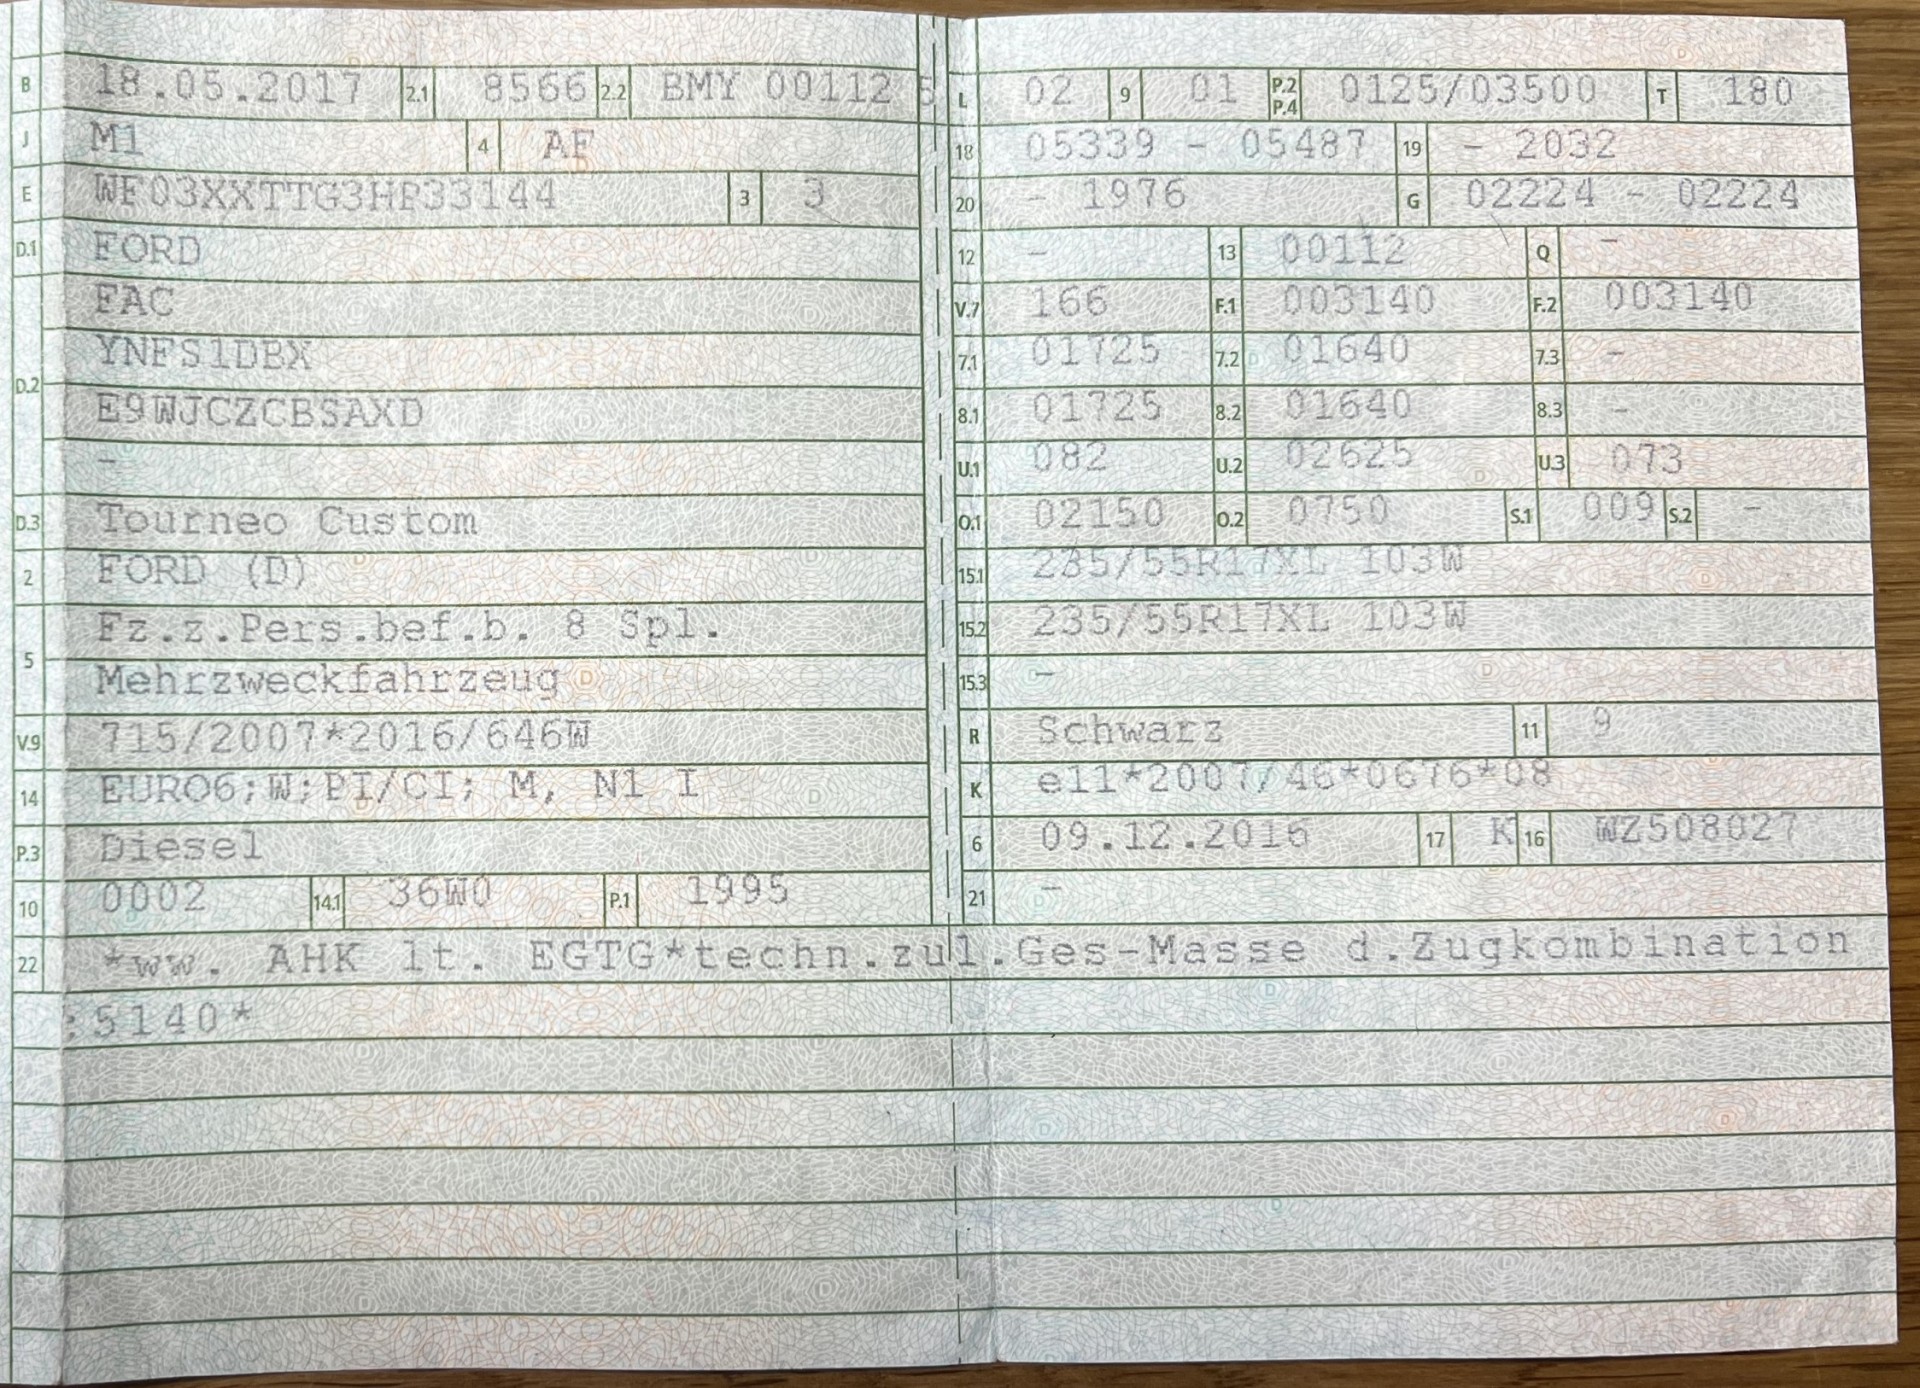 B 18.05.2017 2.1 8566 2.2 BMY 00112 5
J M1 4 AF
E WF03XXTTG3HP33144 3 3
D.1 FORD
FAC
D.2 YNFS1DBX
E9WJCZCBSAXD
-
D.3 Tourneo Custom
2 FORD (D)
Fz.z.Pers.bef.b. 8 Spl.
5 Mehrzweckfahrzeug
V.9 715/2007*2016/646W
14 EURO6;W;PI/CI; M, N1 I
P.3 Diesel
10 0002 14.1 36W0 P.1 1995
L 02 9 01 P.2 P.4 0125/03500 T 180
18 05339 - 05487 19 - 2032
20 - 1976 G 02224 - 02224
12 - 13 00112 Q -
V.7 166 F.1 003140 F.2 003140
7.1 01725 7.2 01640 7.3 -
8.1 01725 8.2 01640 8.3 -
U.1 082 U.2 02625 U.3 073
O.1 02150 O.2 0750 S.1 009 S.2 -
15.1 235/55R17XL 103W
15.2 235/55R17XL 103W
15.3 -
R Schwarz 11 9
K e11*2007/46*0676*08
6 09.12.2016 17 K 16 WZ508027
21 -
22 *ww. AHK lt. EGTG*techn.zul.Ges-Masse d.Zugkombination
:5140*